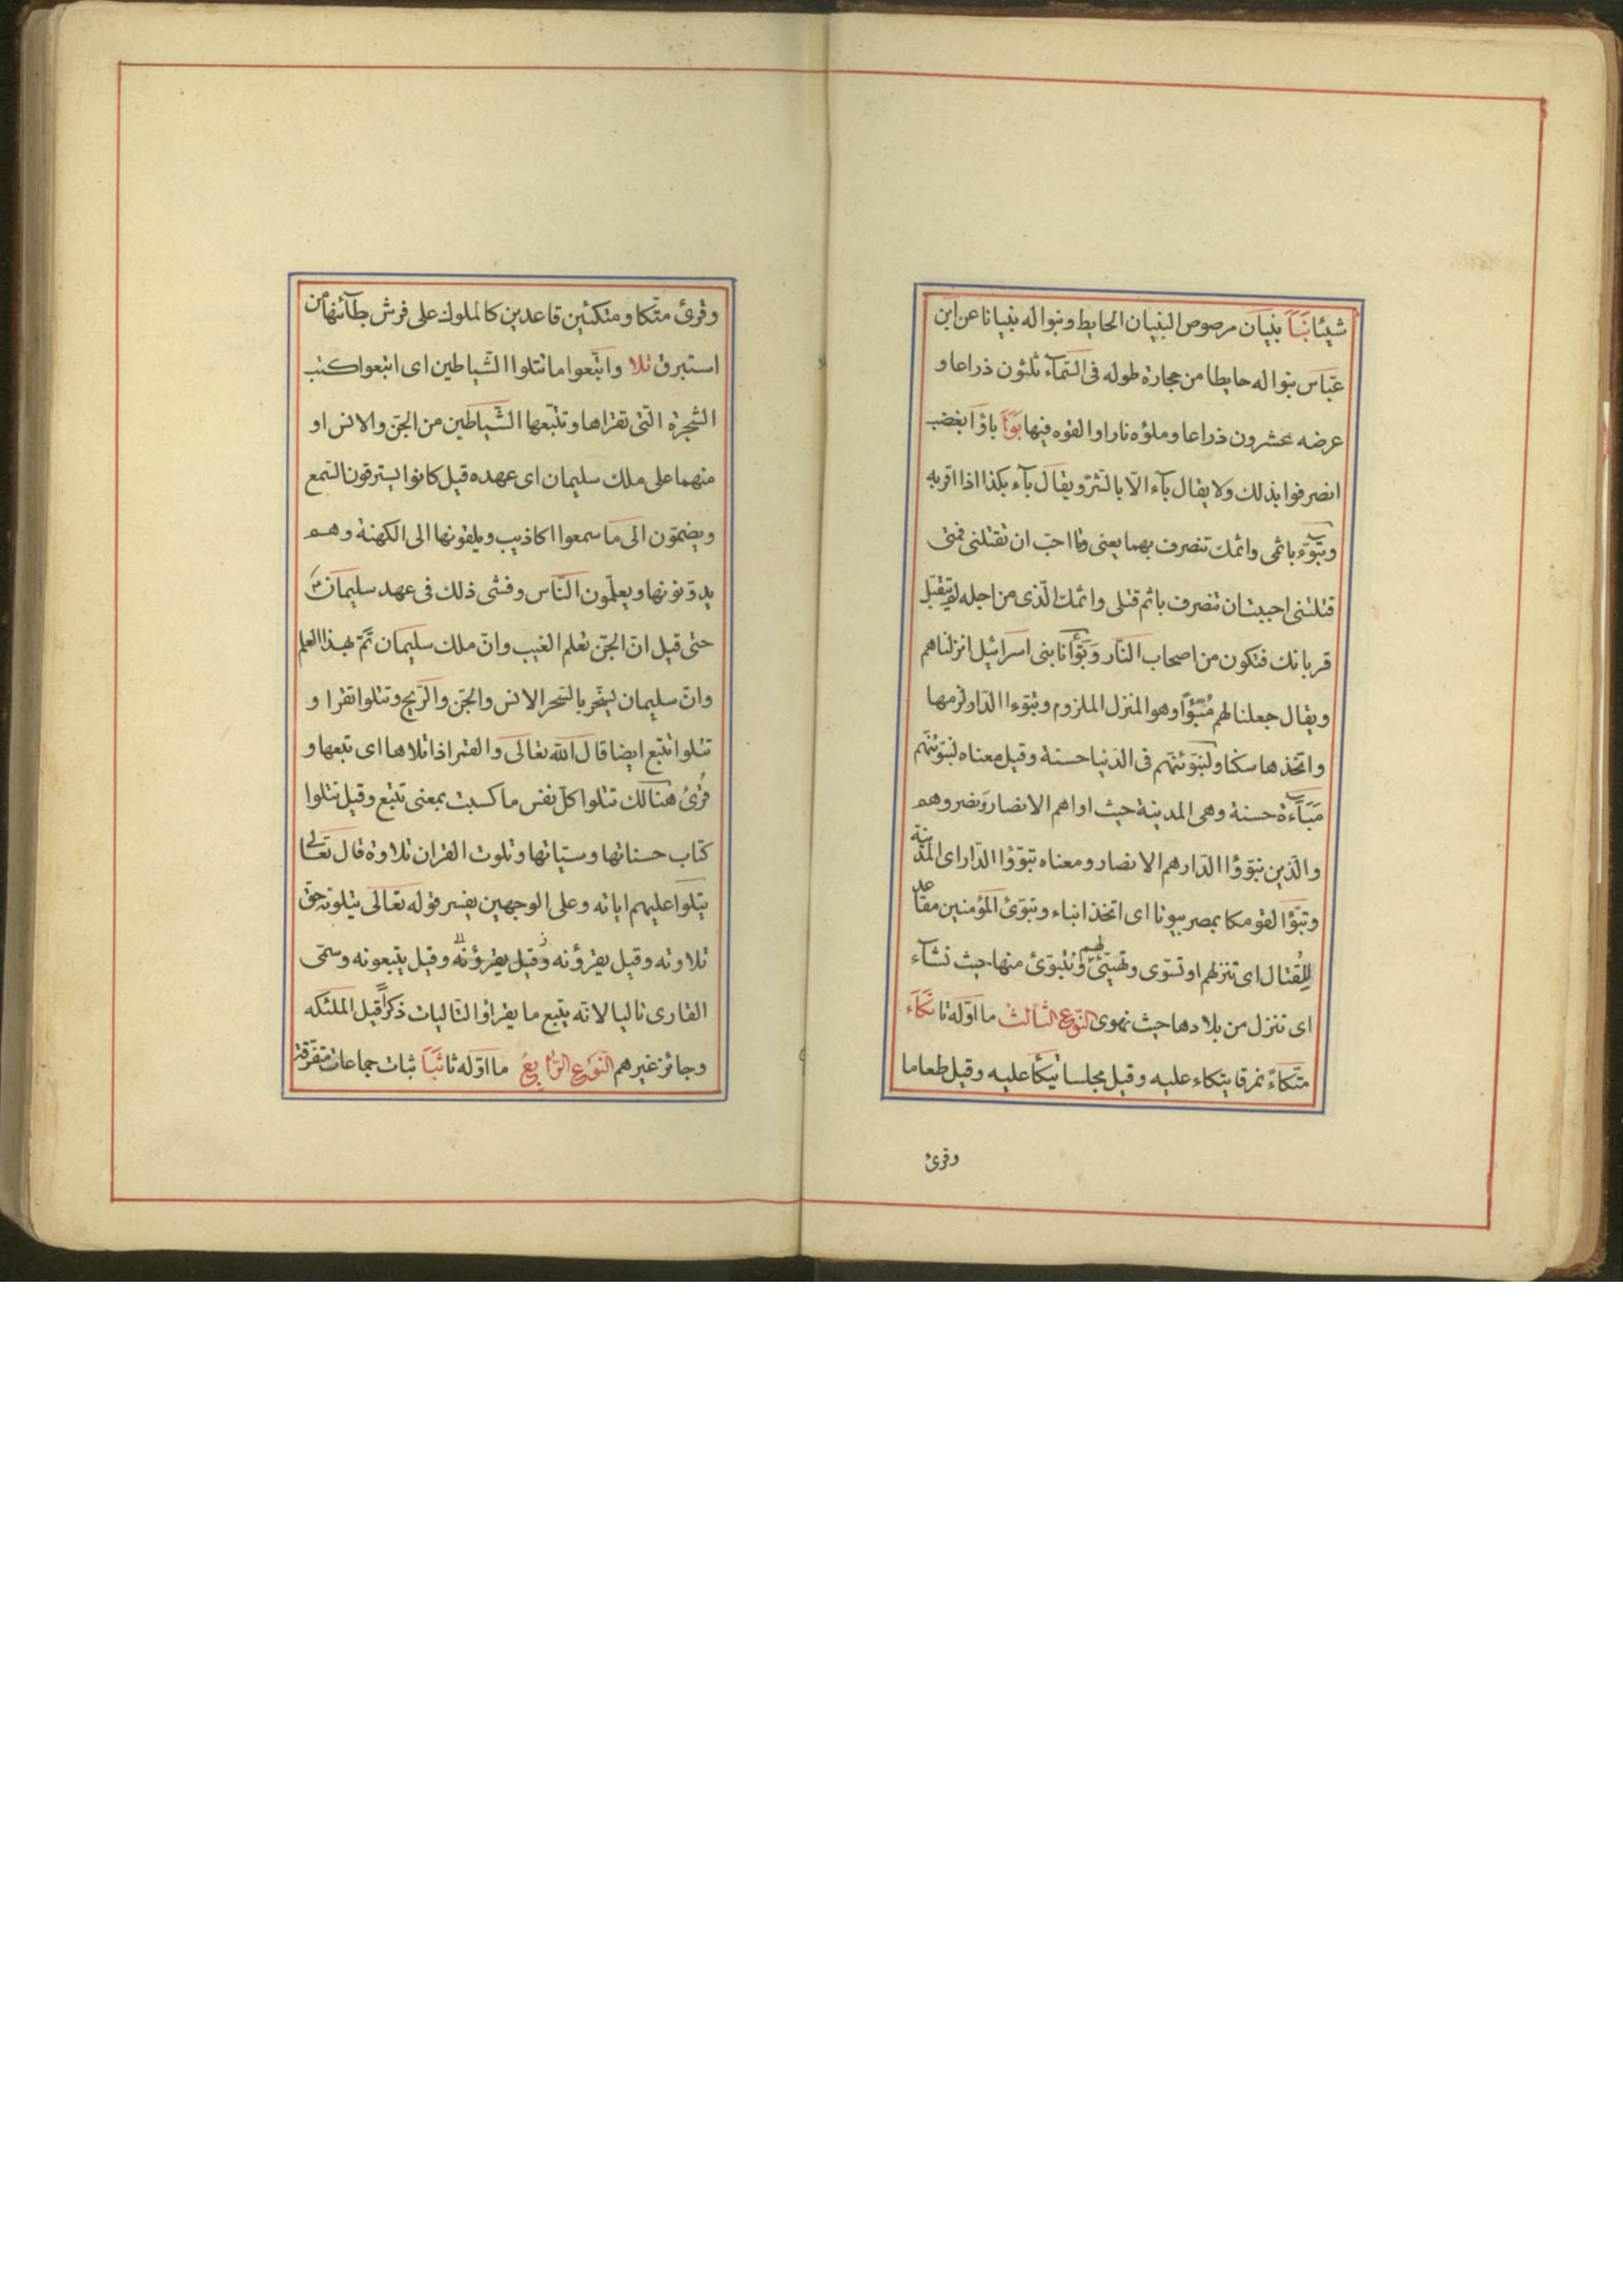 شيئا بَنَا بنيان مرصوص البنيان الحايط وبنوا له بنيانا عن ابن
عبّاس بنوا له حايطا من حجارة طوله فى السّمآء ثلثون ذراعا و
عرضه عشرون ذراعا وملؤه نارا والقوه فيها بَوَأ باؤا بغضب
انصرفوا بذلك ولا يقال بآء الّا بالشّرّ ويقال بآء بكذا اذا اقر به
وتبوّء باثمى واثمك تنصرف بهما يعنى وما احبّ ان تقتلنى فمتى
قتلتنى احببت ان تنصرف باثم قتلى واثمك الّذى من اجله لم يتقبّل
قربانك فتكون من اصحاب النّار وَبَوَّأنا بنى اسرائيل انزلناهم
ويقال جعلنا لهم مُتَبَوَّأ وهو المنزل الملزوم وتبوءا الدّار لزمها
واتّخذها سكنا ولنبوّئنّهم فى الدّنيا حسنة وقيل معناه لنبوّئنّهم
مَبَآءة حسنة وهى المدينة حيث اواهم الانصار ونصروهم
والّذين تبوّؤا الدّار هم الانصار ومعناه تبوّؤا الدّار اى المدينة
وتبوّا لقومكا بمصر بيوتا اى اتخذا بناء وتبوّئ المؤمنين مقاعد
للقتال اى تنزلهم او تسوّى وتهيّئ لهم ونتبوّئ منها حيث نشآء
اى ننزل من بلادها حيث نهوى النّوع الثّالث ما اوّله تا تكَاَء
متّكاءً نمرقا يتكاء عليه وقيل مجلسا يتكأ عليه وقيل طعاما
وقرئ
وقرئ متكا ومتكئين قاعدين كالملوك على فرش بطآئنها من
استبرق تلا واتّبعوا ما تتلوا الشّياطين اى اتبعوا كتب
الشجرة الّتى تقراها وتتّبعها الشّياطين من الجنّ والانس او
منهما على ملك سليمان اى عهده قيل كانوا يسترقون السّمع
ويضمّون الى ما سمعوا اكاذيب ويلقونها الى الكهنة وهم
يدوّنونها ويعلّمون النّاس وفشى ذلك فى عهد سليمان
حتى قيل انّ الجنّ تعلم الغيب وانّ ملك سليمان تمّ بهذا العلم
وانّ سليمان ليسخّر بالسّحر الانس والجنّ والرّيح وتتلوا تقرا و
تتلوا تتبع ايضا قال اللّه تعالى والقمر اذا تلاها اى تبعها و
قُرئ هنالك تتلوا كلّ نفس ما كسبت بمعنى تتبع وقيل تتلوا
كتاب حسناتها وسيّاتها وتلوت القران تلاوة قال تعالى
يتلوا عليهم اياته وعلى الوجهين يفسر قوله تعالى يتلونه حقّ
تلاوته وقيل يقرؤنه وقيل يقرؤنه وقيل يتبعونه وسمّى
القارى تاليا لانّه يتبع ما يقرا والتّاليات ذكراً قيل الملئكه
وجائز غيرهم النّوع الرّابع ما اوّله ثا ثَبَا ثبات جماعات متفرّقة